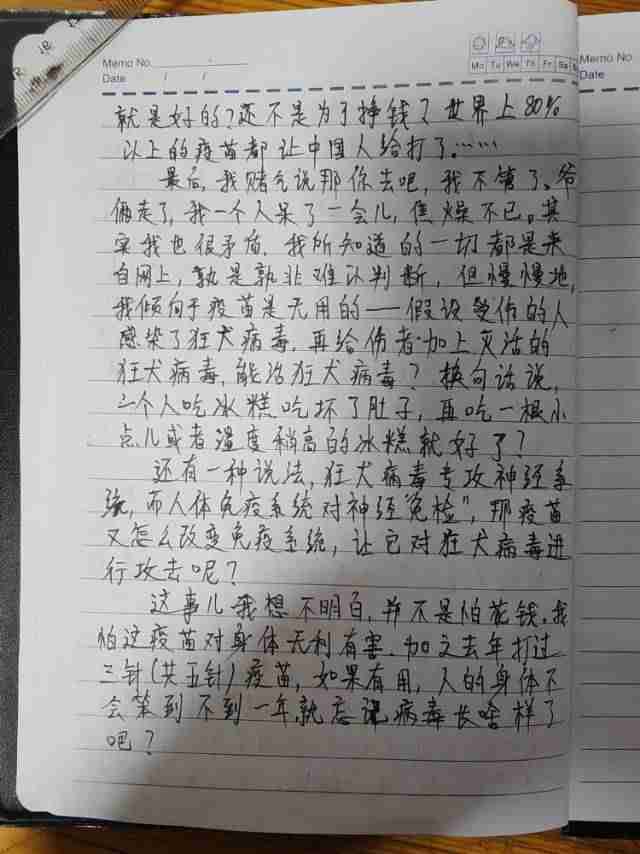 Memo No.
Date / /
Mo Tu We Th Fr Sa
Memo No
Date
就是好的？还不是为了挣钱？世界上80%
以上的疫苗都让中国人给打了……
最后，我赌气说那你去吧，我不管了。爷
俩走了，我一个人呆了一会儿，焦燥不已。其
实我也很矛盾，我所知道的一切都是来
自网上，孰是孰非难以判断，但慢慢地，
我倾向于疫苗是无用的——假设受伤的人
感染了狂犬病毒，再给伤者加上灭活的
狂犬病毒，能治狂犬病毒？换句话说，
一个人吃冰糕吃坏了肚子，再吃一根小
点儿或者温度稍高的冰糕就好了？
还有一种说法，狂犬病毒专攻神经系
统，而人体免疫系统对神经“免检”，那疫苗
又怎么改变免疫系统，让它对狂犬病毒进
行攻击呢？
这事儿我想不明白，并不是怕花钱，我
怕这疫苗对身体无利有害，加之去年打过
三针(共五针)疫苗，如果有用，人的身体不
会笨到不到一年，就忘记病毒长啥样了
吧？